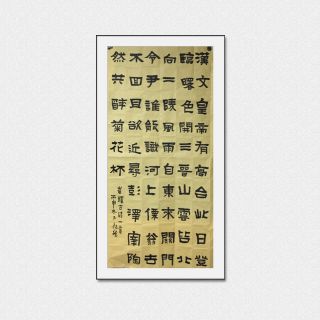 漢文皇帝有高台此日登
臨曙色開三晉山雲皆北
向二陵風雨自東來關門
令尹誰能識河上僊翁去
不回且欲近尋彭澤宰陶
然共醉菊花杯
崔曙古詩一首